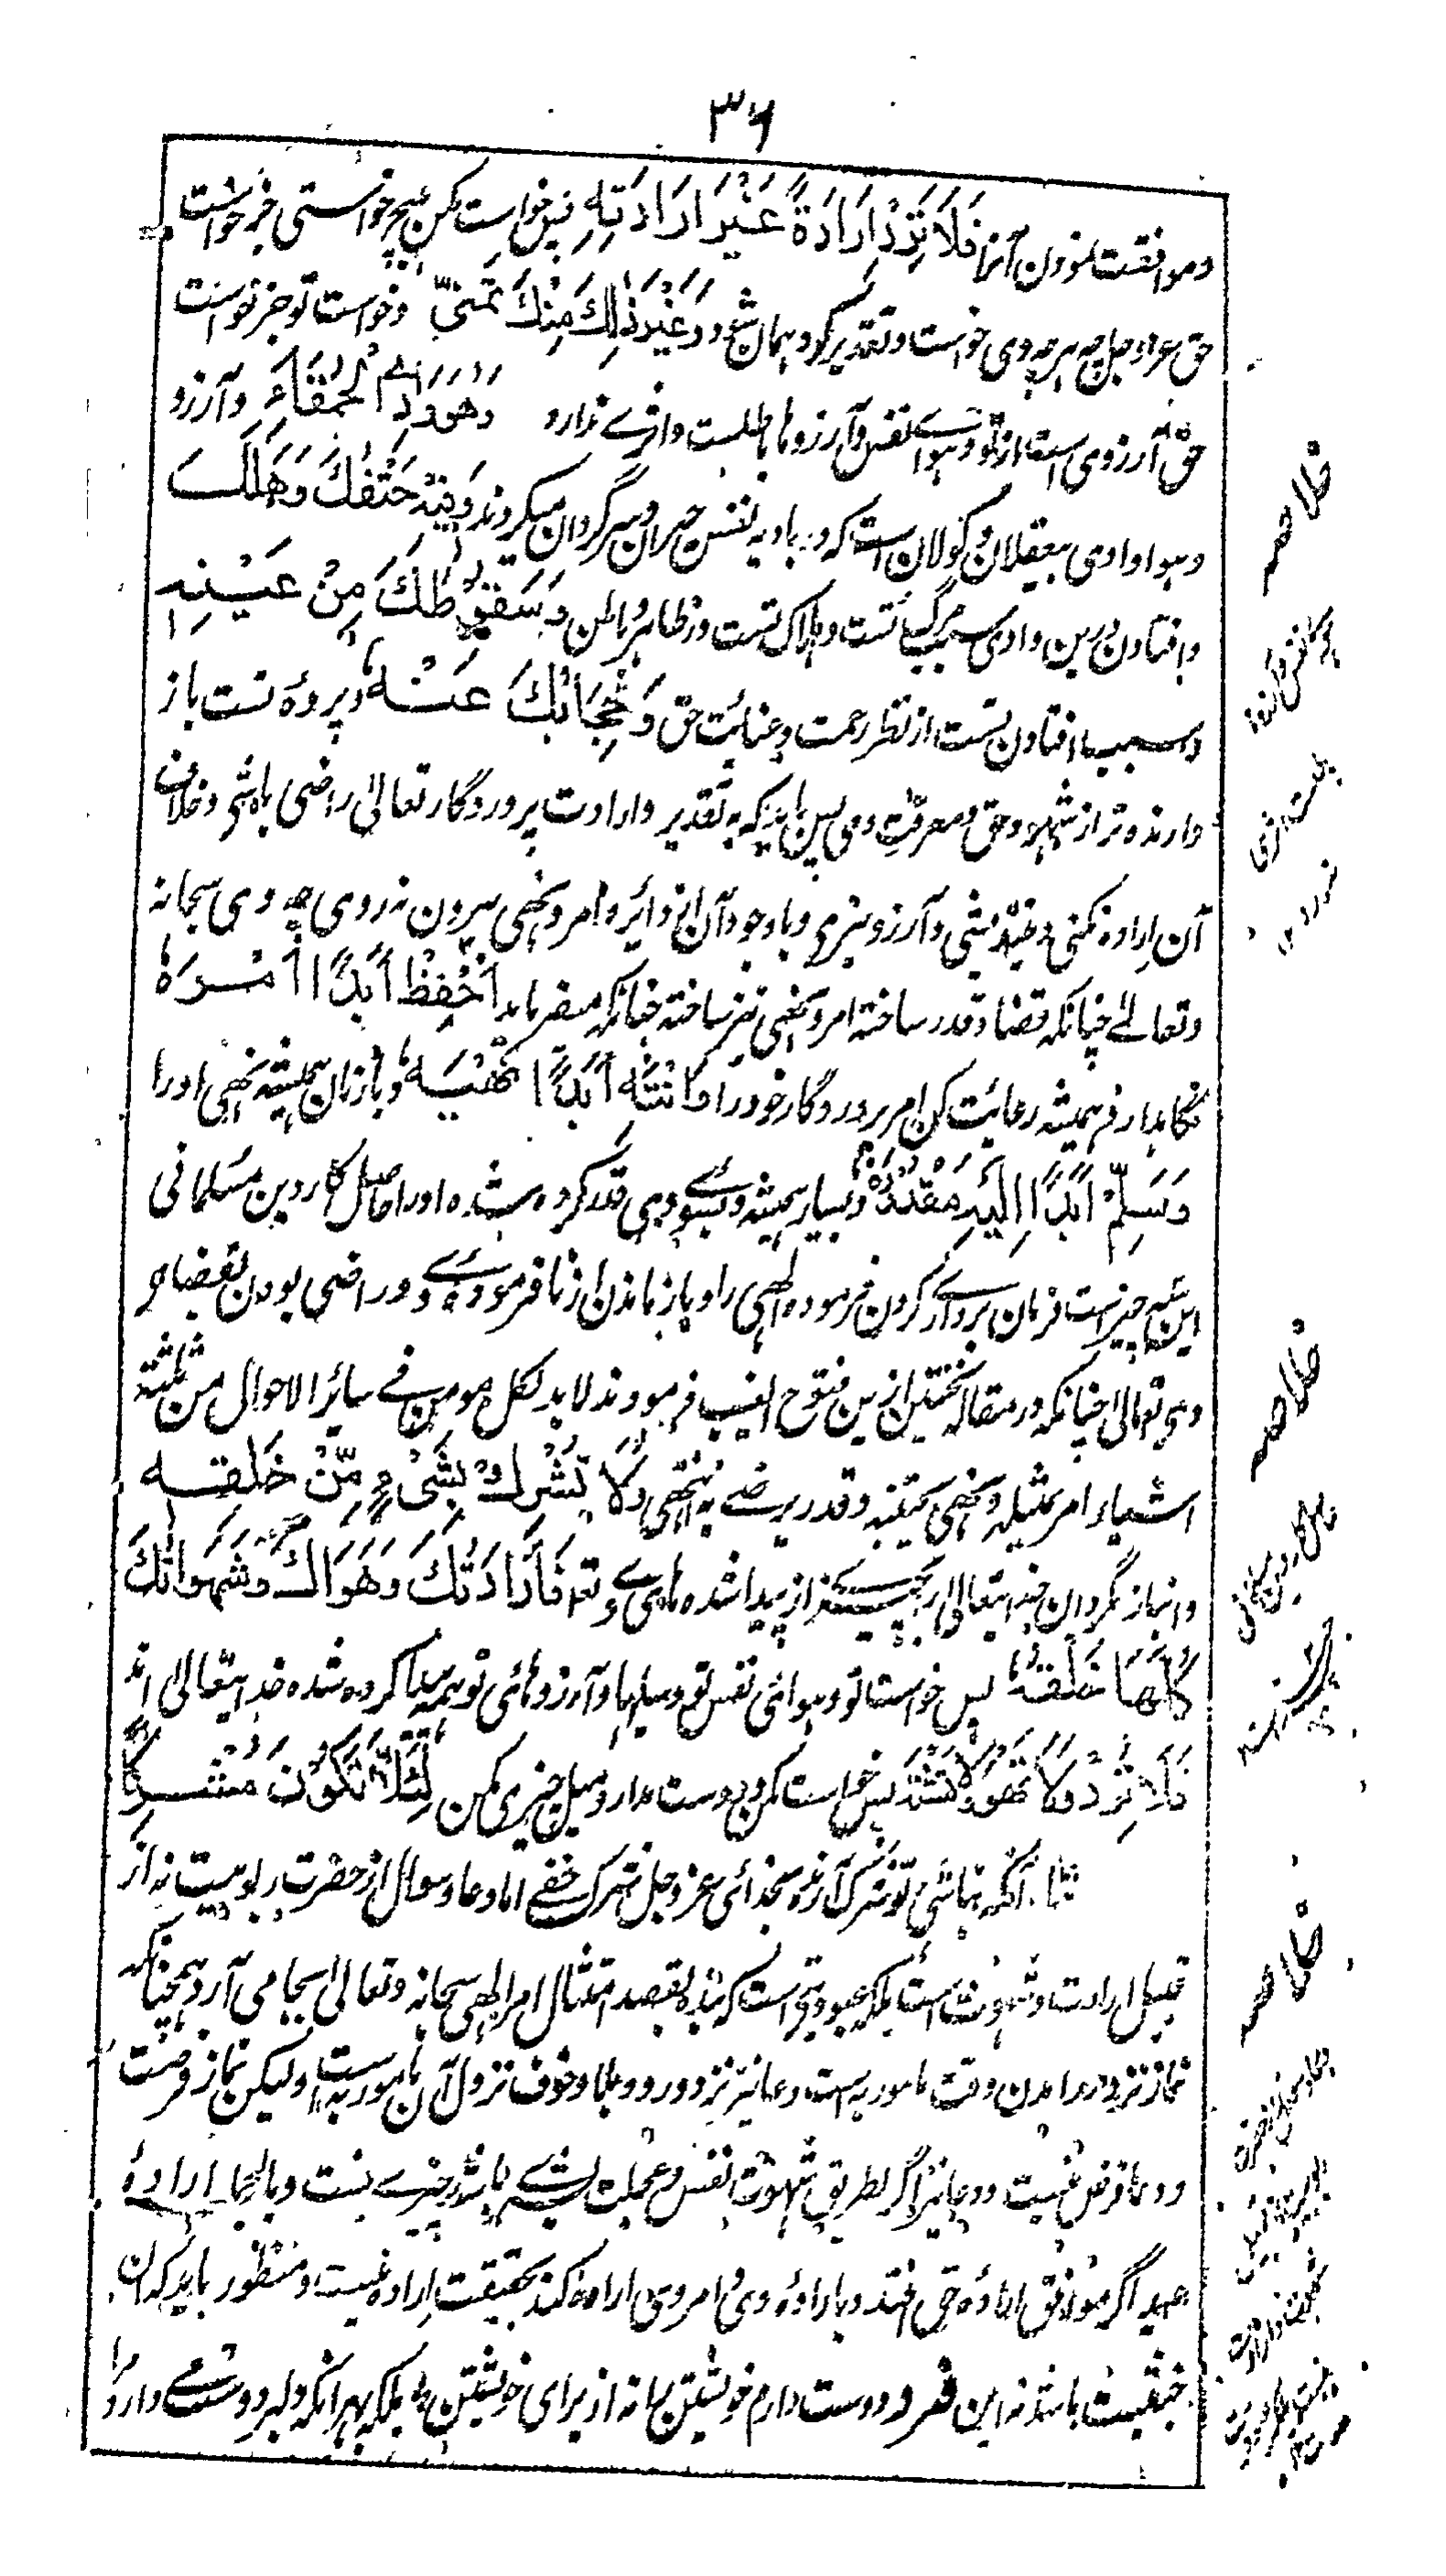 ۳۶
وموافقت نمودن آنرا فَلَا تُرِدْ اِرَادَةً غَيْرَ اِرَادَتِهٖ پس خواست مکن هیچ خواستی جز خواست
حق عز وجل چه هر چه وی خواست و تقدیر کرد همان شود وَغَيْرُ ذٰلِكَ مِنْكَ تَمَنٍّ وخواست تو جز خواست
حق آرزوی است از تو و هوائے نفس و آرزوها باطلست و اثرے ندارد وَهُوَ وَادِي الْحُمَقَاءِ و آرزو
و هوا وادی بیعقلان و گولان است که در بادیه نفس حیران و سرگردان میگردند وَفِيْهِ حَتْفُكَ وَهَلَاكُكَ
و افتادن درین وادی سبب مرگ تست و هلاک تست در ظاهر و باطن وَسُقُوْطُكَ مِنْ عَيْنِهٖ
و سبب افتادن تست از نظر رحمت و عنایت حق وَحِجَابُكَ عَنْهُ و پرده تست باز
دارنده تر از شهود حق و معرفت وی پس باید که به تقدیر و ارادت پروردگار تعالیٰ راضی باشی و خلاف
آن اراده نکنی و نیندیشی و آرزو نبری و با وجود آن از دائره امر و نهی بیرون نه روی چه وی سبحانه
وتعالےٰ چنانکه قضا و قدر ساخته امر و نهی نیز ساخته چنانکه میفرماید اِحْفَظْ اَبَدًا اَمْرَهٗ
نگاهدار و همیشه رعایت کن امر پروردگار خود را وَانْتَهِ اَبَدًا نَهْيَهٗ و باز مان همیشه نهی او را
وَسَلِّمْ اَبَدًا اِلَيْهِ مَقْدُوْرَهٗ و بسپار همیشه وبسوے وی قدر کرده شده او را حاصل کار دین مسلمانی
این سه چیز است فرمان برداے کردن فرموده الهی را و باز ماندن از نافرمودۂ وے و راضی بودن بقضاء
وی تعالیٰ چنانکه در مقاله نخستین ازین فتوح الغیب فرمودند لابد لکل مومن فے سائر الاحوال من ثلثة
اشیاء امر یمتثله و نهی یجتنبه و قدر یرضے به انتهی وَلَا تُشْرِكْهُ بِشَيْءٍ مِّنْ خَلْقِهٖ
و انباز مگردان خدایتعالیٰ را بچیزے از پیدا شده های وے تعالی فَاِرَادَتُكَ وَهَوَاكَ وَشَهَوَاتُكَ
كُلُّهَا خَلْقُهٗ پس خواست تو و هوائی نفس تو و میلها و آرزوهائی تو همه پیدا کرده شده خدایتعالیٰ اند
فَلَا تُرِدْ وَلَا تَهْوَ وَلَا تَشْتَهِ پس خواست مکن و دوست مدار و میل چیزی مکن لِئَلَّا تَكُوْنَ مُشْرِكًا
تا آنکه نباشی تو شرک آرنده بخدائی عز وجل شرک خفے اما دعا و سوال از حضرت ربوبیت نه از
قبیل ارادت و شهوت است بلکه عبودیتی است که بنده بقصد امتثال امر الهی سبحانه وتعالیٰ بجا می آرد همچنانکه
نماز نزد درامدن وقت مامور به است دعا نیز نزد ورود بلا و خوف نزول آن مامور به است ولیکن نماز فرضست
و دعا فرض نیست و دعا نیز اگر بطریق شهوت نفس و عجلت بشرے باشد چیزے نیست و بالجملہ ارادۂ
عبد اگر موافق ارادۂ حق افتد و بارادۂ وی و امر وی اراده کند بحقیقت اراده نیست و منظور باید که آن
حقیقت باشد نه این فرد دوست دارم خویشتن را نه از برای خویشتن بلکه بهر آنکه دلبر دوست میدارد مرا
خلاصه
خلاصه
خلاصه